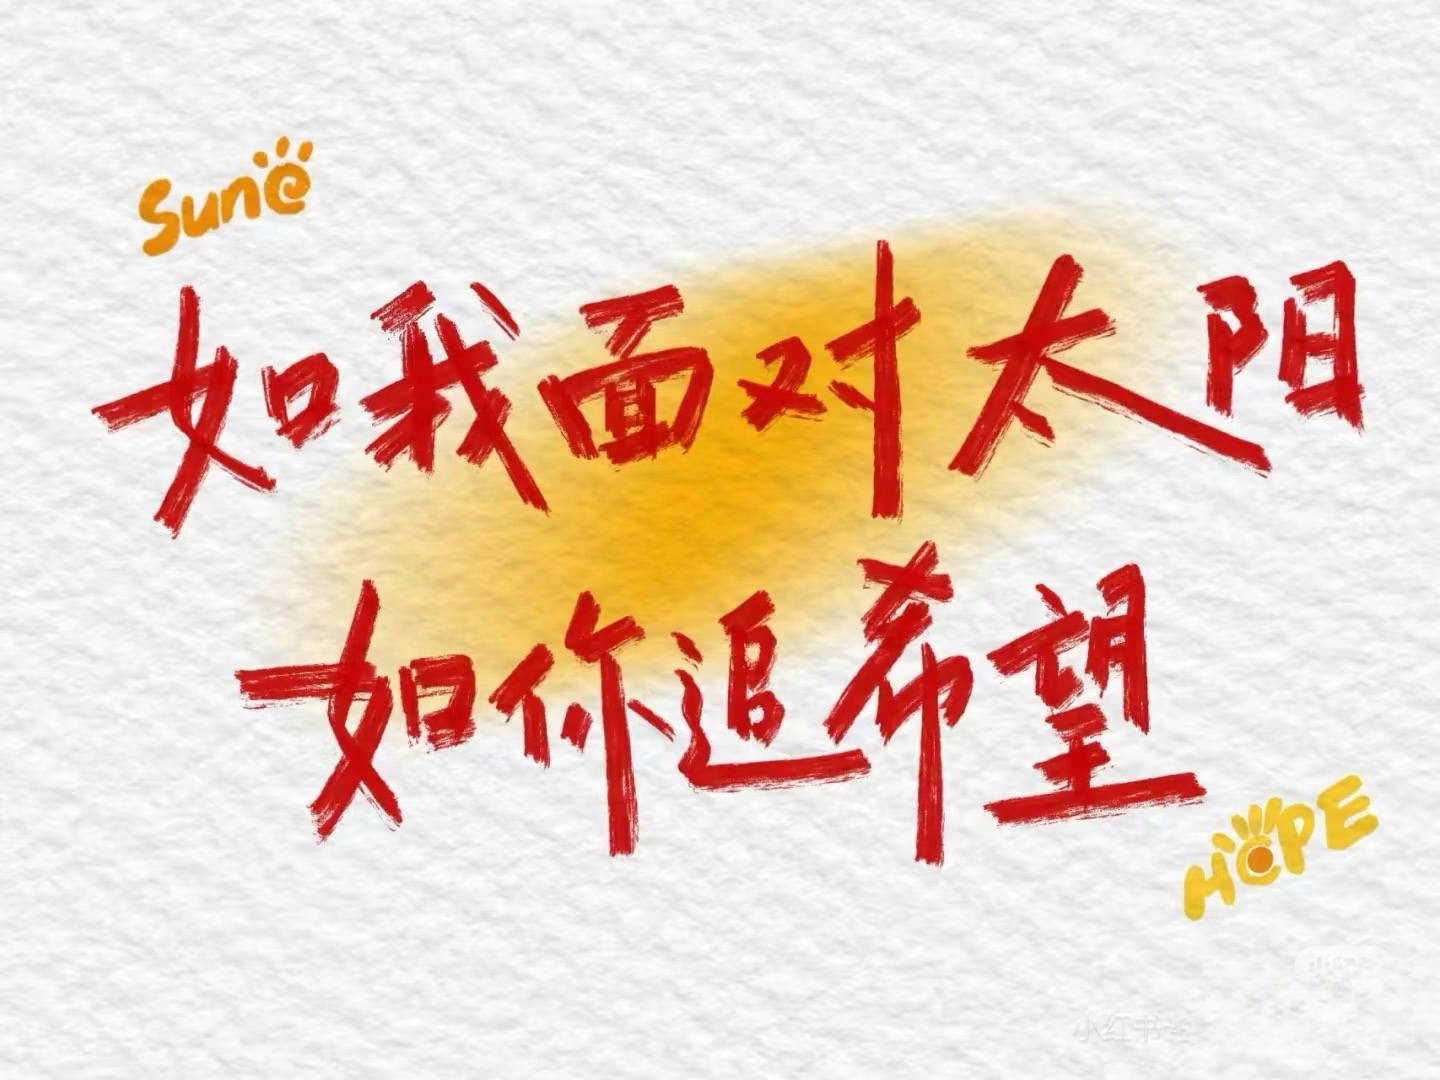 Sun
如我面对太阳
如你追希望
HOPE
小红书